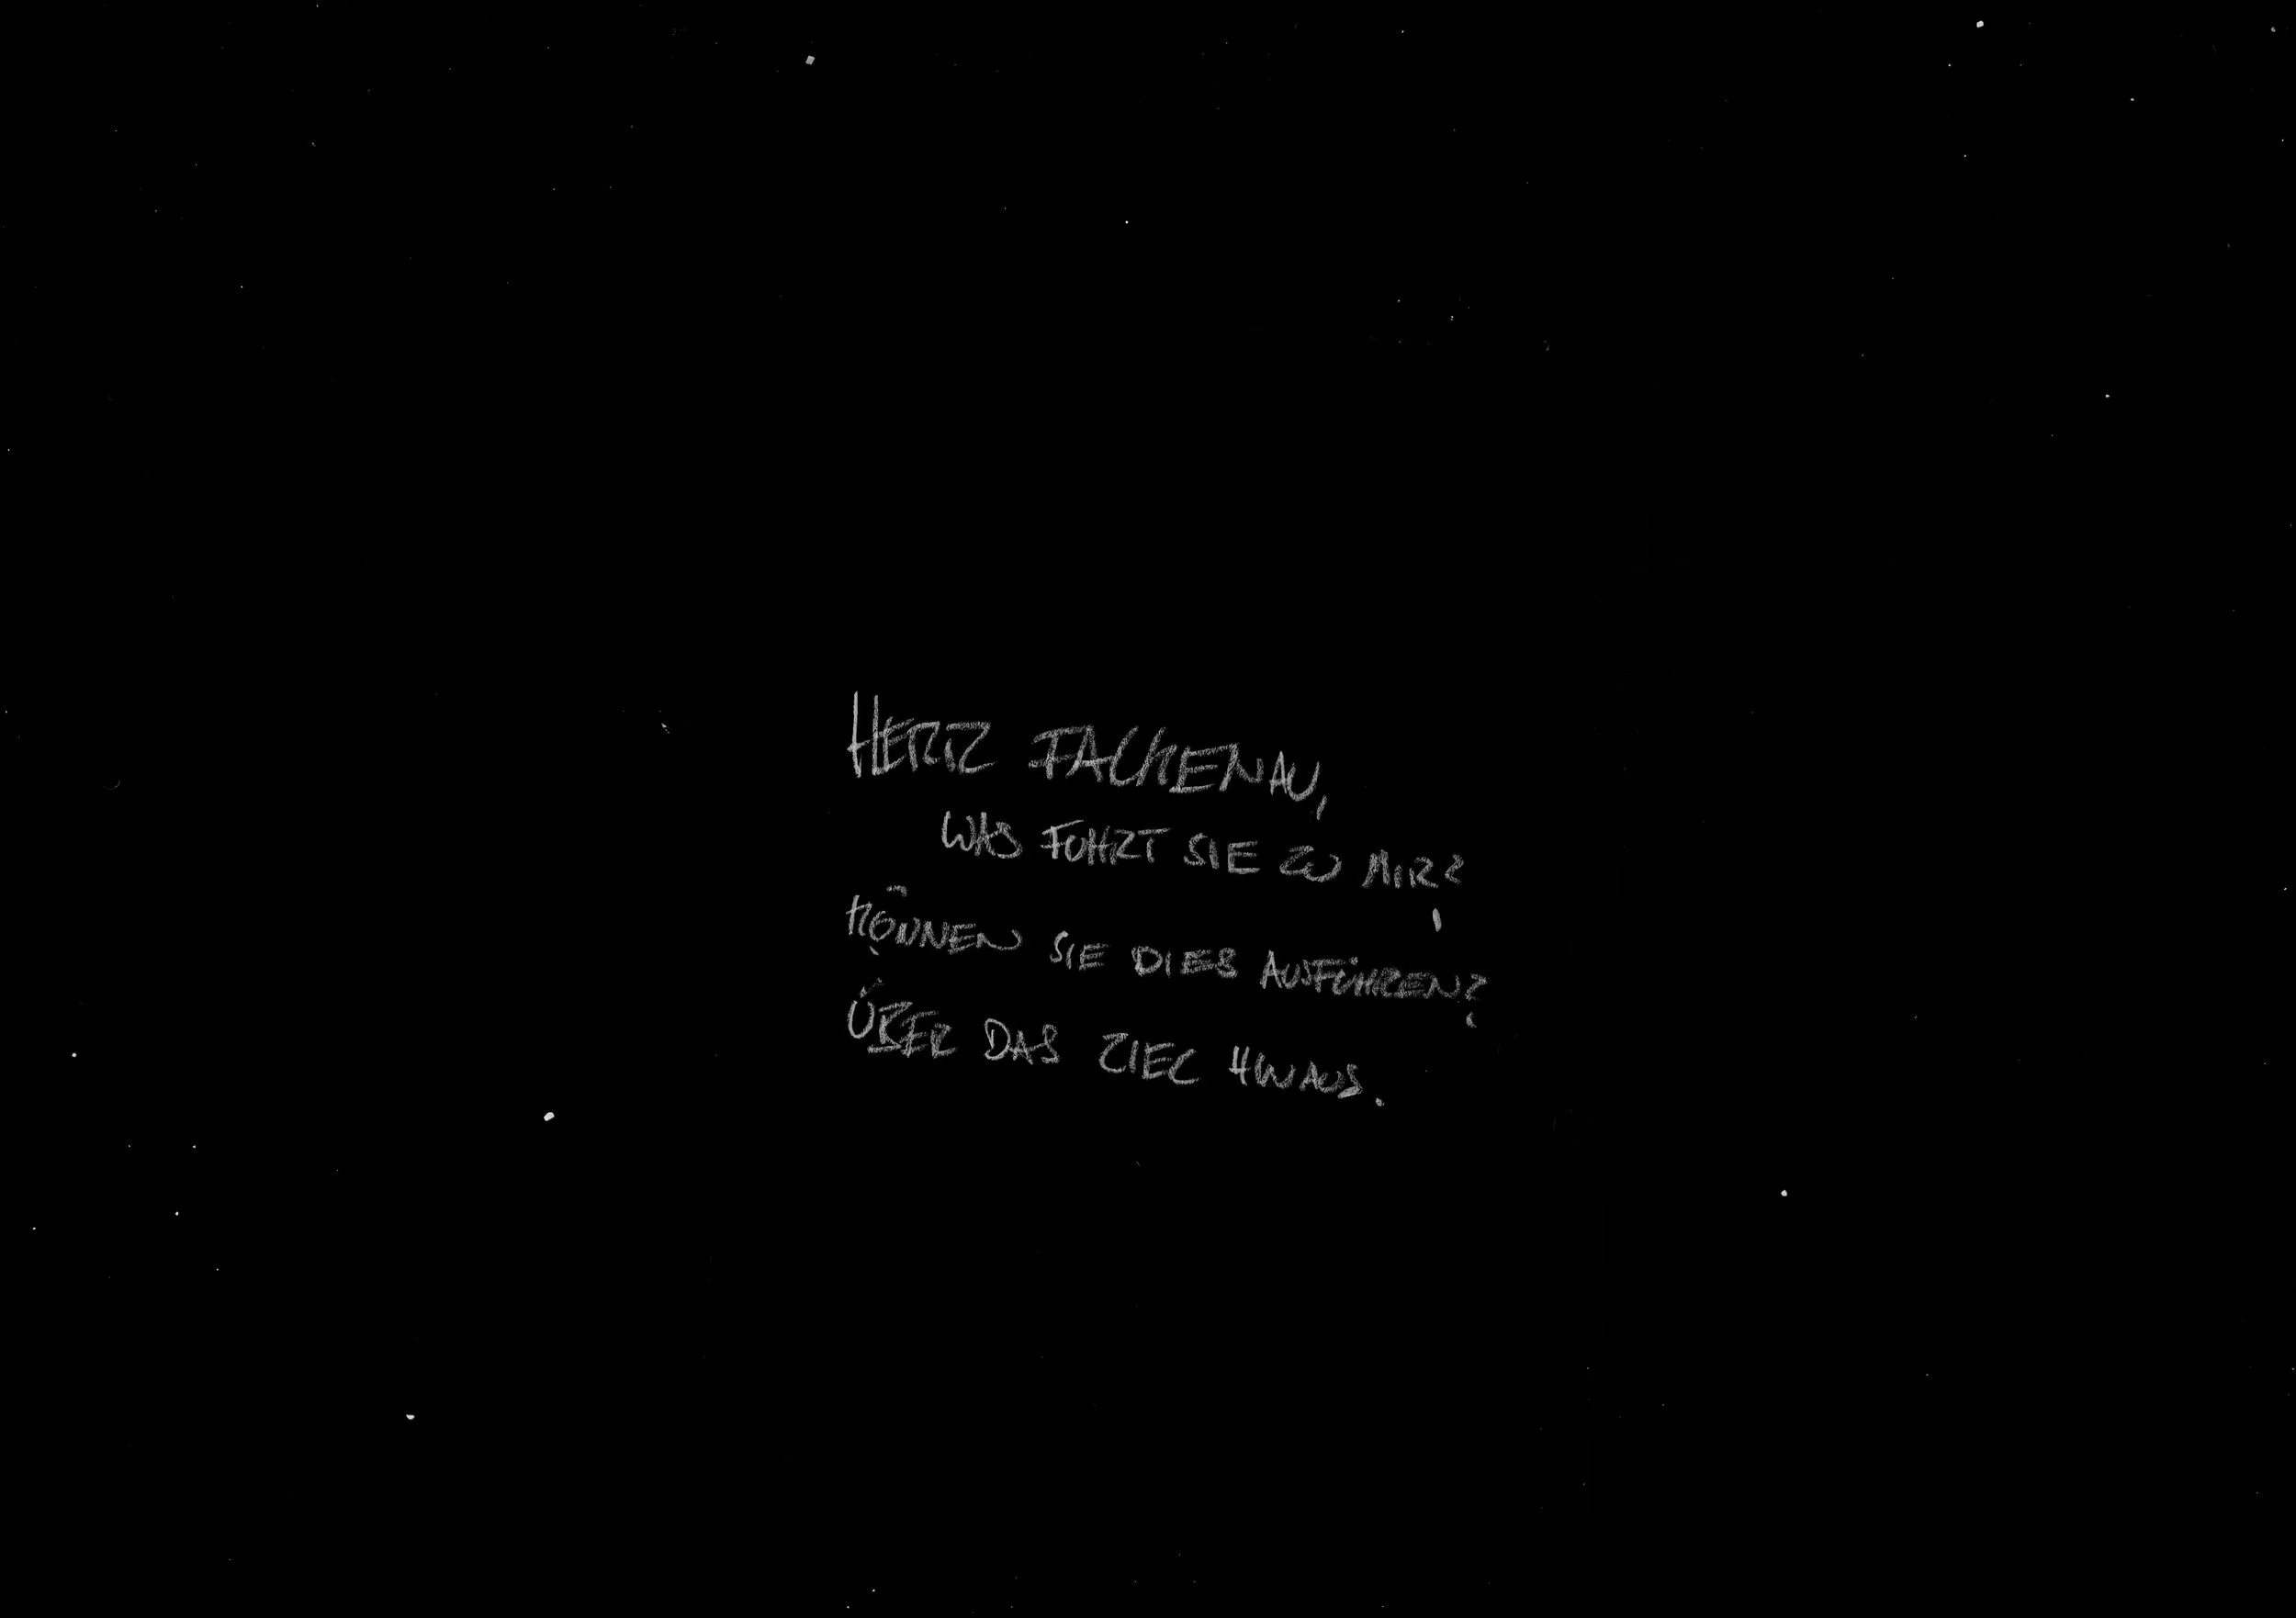 HERR FALKENAU,
WAS FÜHRT SIE ZU MIR?
KÖNNEN SIE DIES AUSFÜHREN?
ÜBER DAS ZIEL HINAUS.